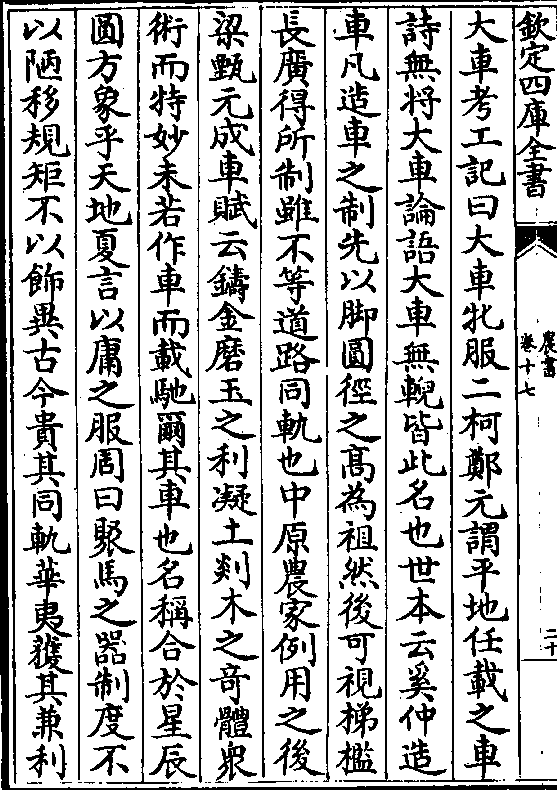 欽定四庫全書
農書
卷十七
二十
大車考工記曰大車牝服二柯鄭元謂平地任載之車
詩無將大車論語大車無輗皆此名也世本云奚仲造
車凡造車之制先以脚圓徑之髙為祖然後可視梯檻
長廣得所制雖不等道路同軌也中原農家例用之後
梁甄元成車賦云鑄金磨玉之利凝土剡木之竒體衆
術而特妙未若作車而載馳爾其車也名稱合於星辰
圓方象乎天地夏言以庸之服周曰聚馬之器制度不
以陋移規矩不以飾異古今貴其同軌華夷獲其兼利